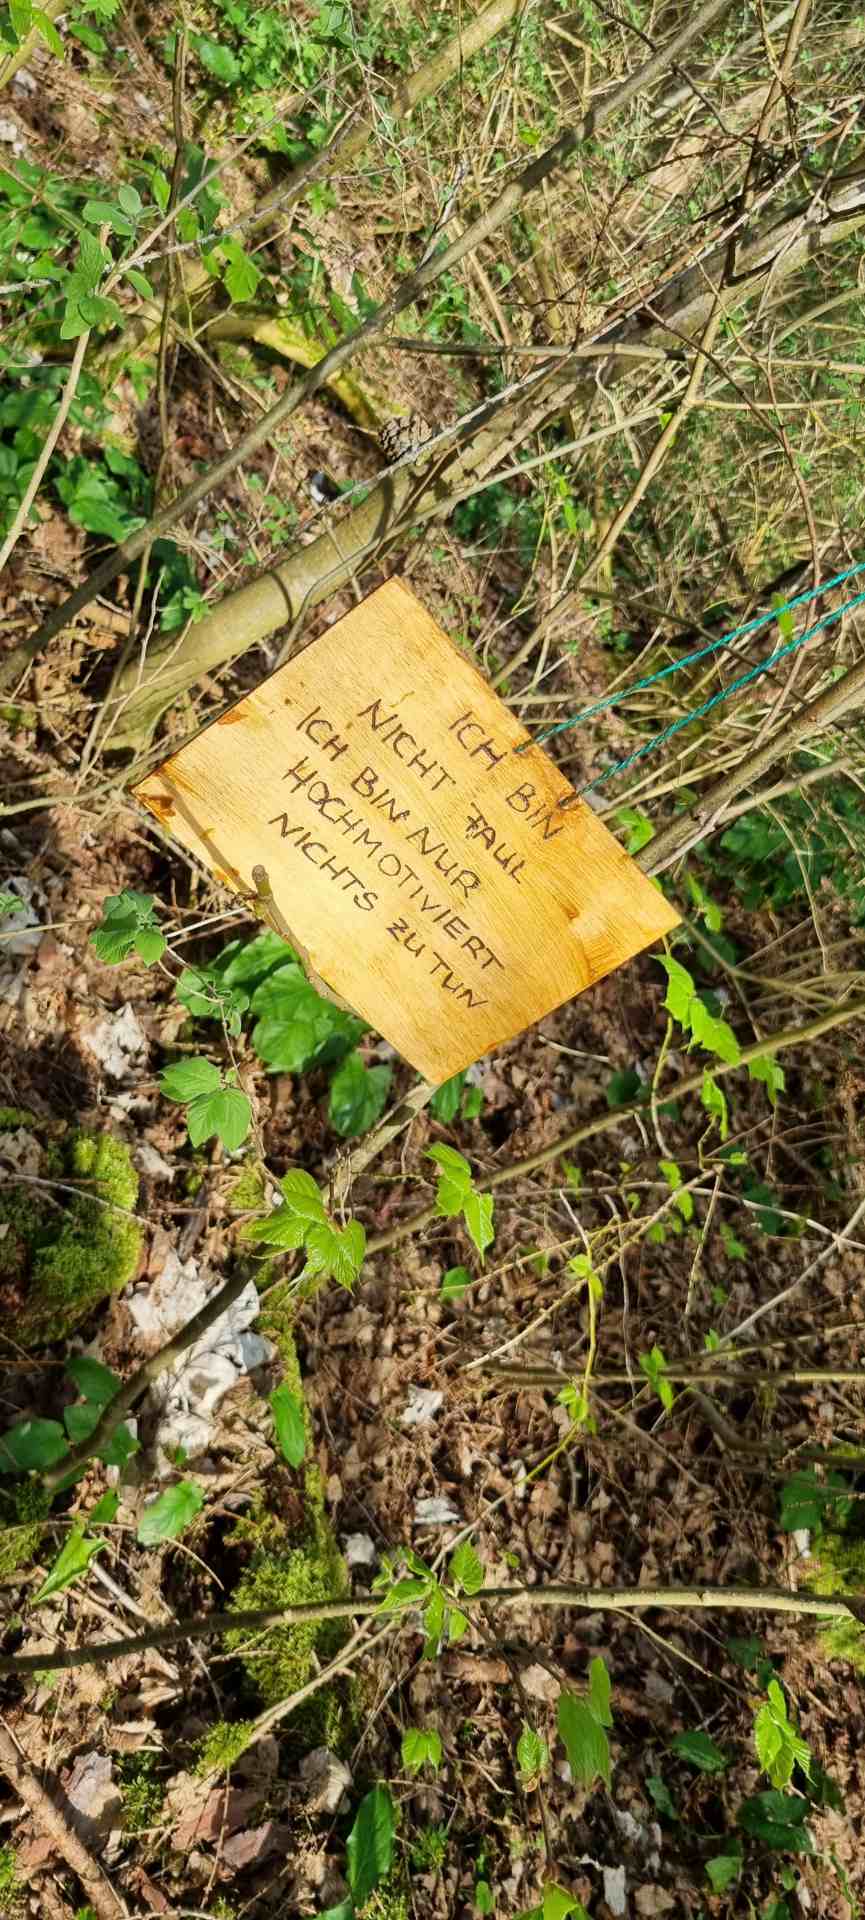 ICH BIN
NICHT FAUL
ICH BIN NUR
HOCHMOTIVIERT
NICHTS ZU TUN